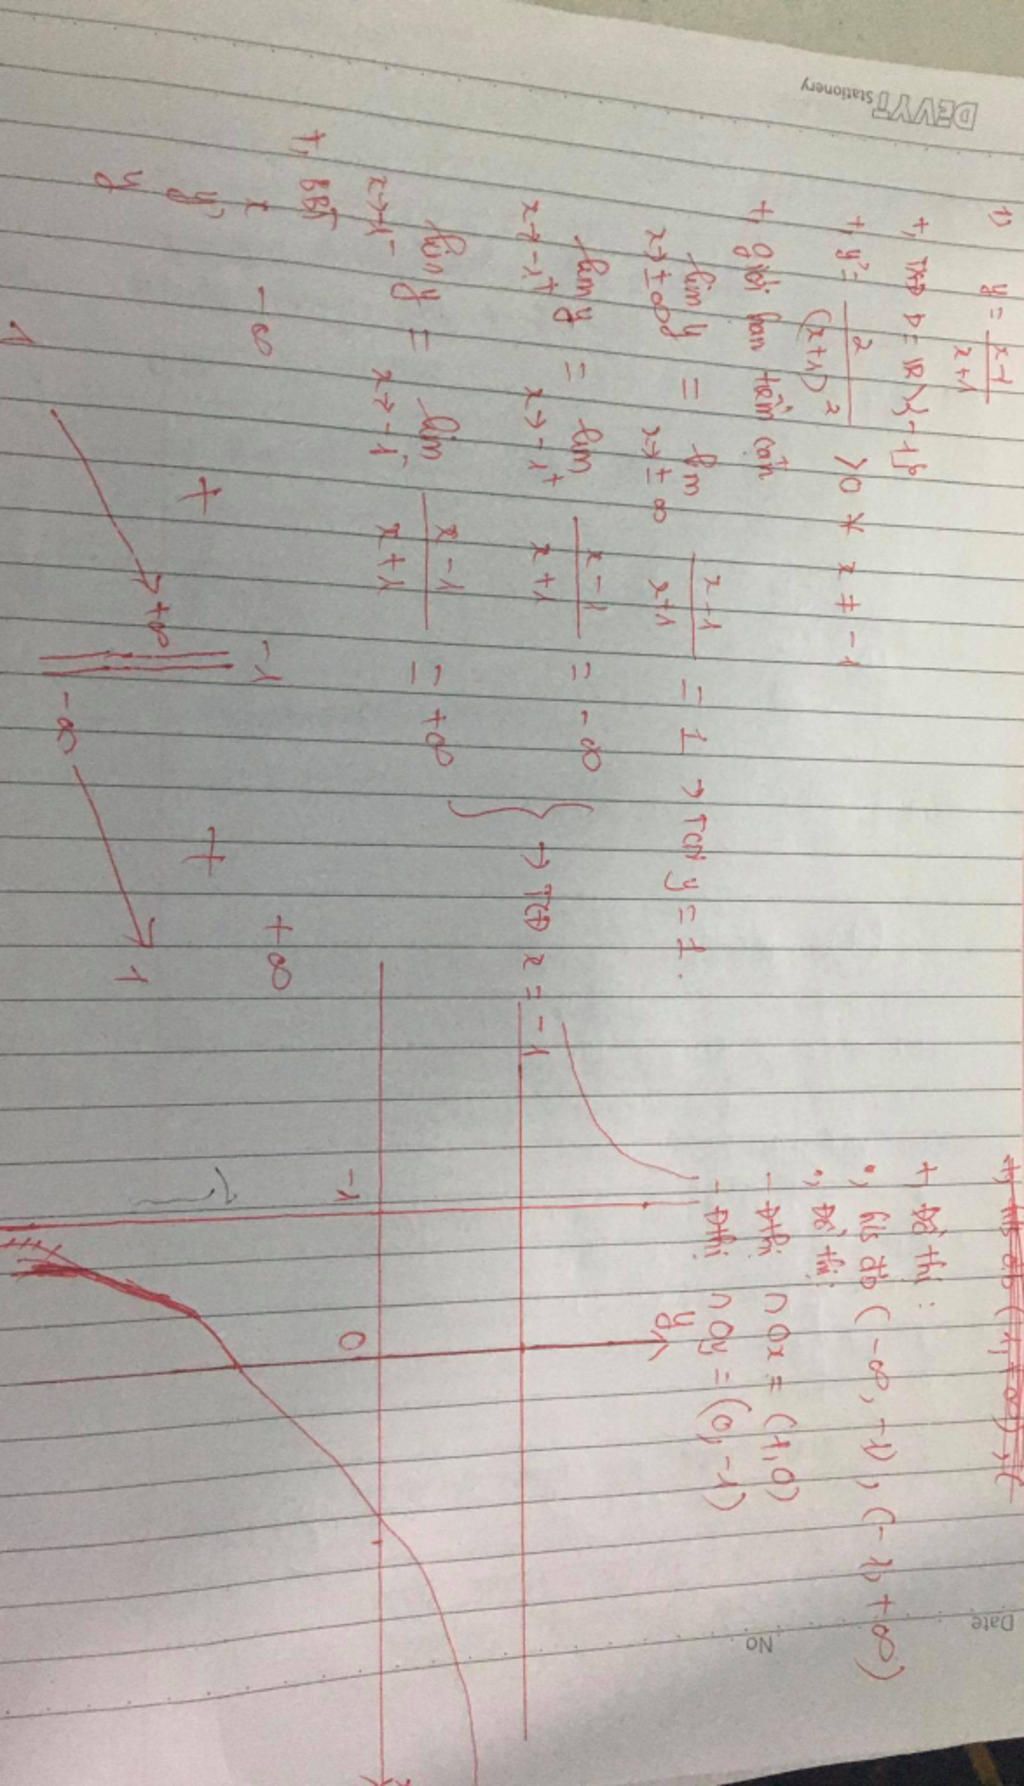 DEVYT Stationery
Date
No
1) y = x-1 / x+1
+, TXĐ D = R \ {-1}
+, y' = 2 / (x+1)² > 0 ∀ x ≠ -1
+, giới hạn tiệm cận
lim y = lim x-1 / x+1 = 1 → TCN y = 1.
x→±∞ x→±∞
lim y = lim x-1 / x+1 = -∞
x→-1⁺ x→-1⁺
lim y = lim x-1 / x+1 = +∞
x→-1⁻ x→-1⁻
} → TCĐ x = -1
+, BBT
x -∞ -1 +∞
y' + +
y 1 +∞ -∞ 1
+, Đồ thị:
•, h/s đb (-∞, -1), (-1, +∞)
•, Đồ thị:
- Đthị ∩ Ox = (1, 0)
- Đthị ∩ Oy = (0, -1)
y
-1 0